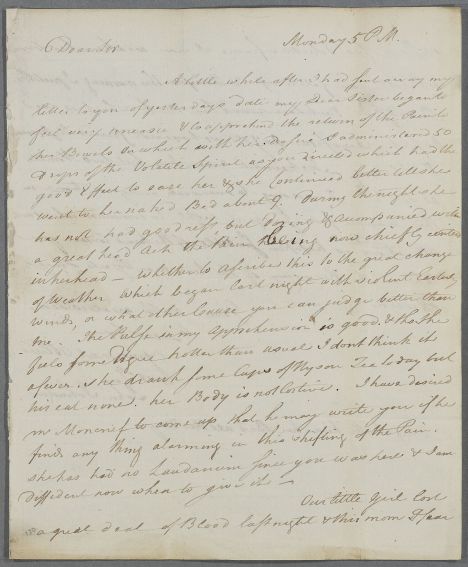 Dear Sir Monday 5 P.M.
A little while after I had sent away my
letter to you of yesterdays date my Dear Sister began to
feel very uneasie & to apprehend the return of the Pain in
her Bowels on which with her desire I administered 50
Drops of the Volatile Spirit as you directed which had the
good Effect to ease her & she continued better till she
went to her naked Bed about 9. During the night she
has not had good rest but dozing & accompanied with
a great head Ach the Pain being now chiefly
in her head – whether to ascribe this to the great change
of Weather which began last night with violent Easterly
Winds, or what other Cause you can judge better than
me. The Pulse in my apprehension is good, & tho she
feels some Degree hotter than usual I dont think its
a fever. she drank some Cups of Hyson Tea to day but
has eat none. her Body is not Costive. I have desired
Mr Moncrief to come up that he may write you if he
finds any thing alarming in this shifting of the Pain.
she has had no Laudanum since you was here & I am
Diffident now when to give it –
Our little Girl lost
a great deal of Blood last night & this morn I fear